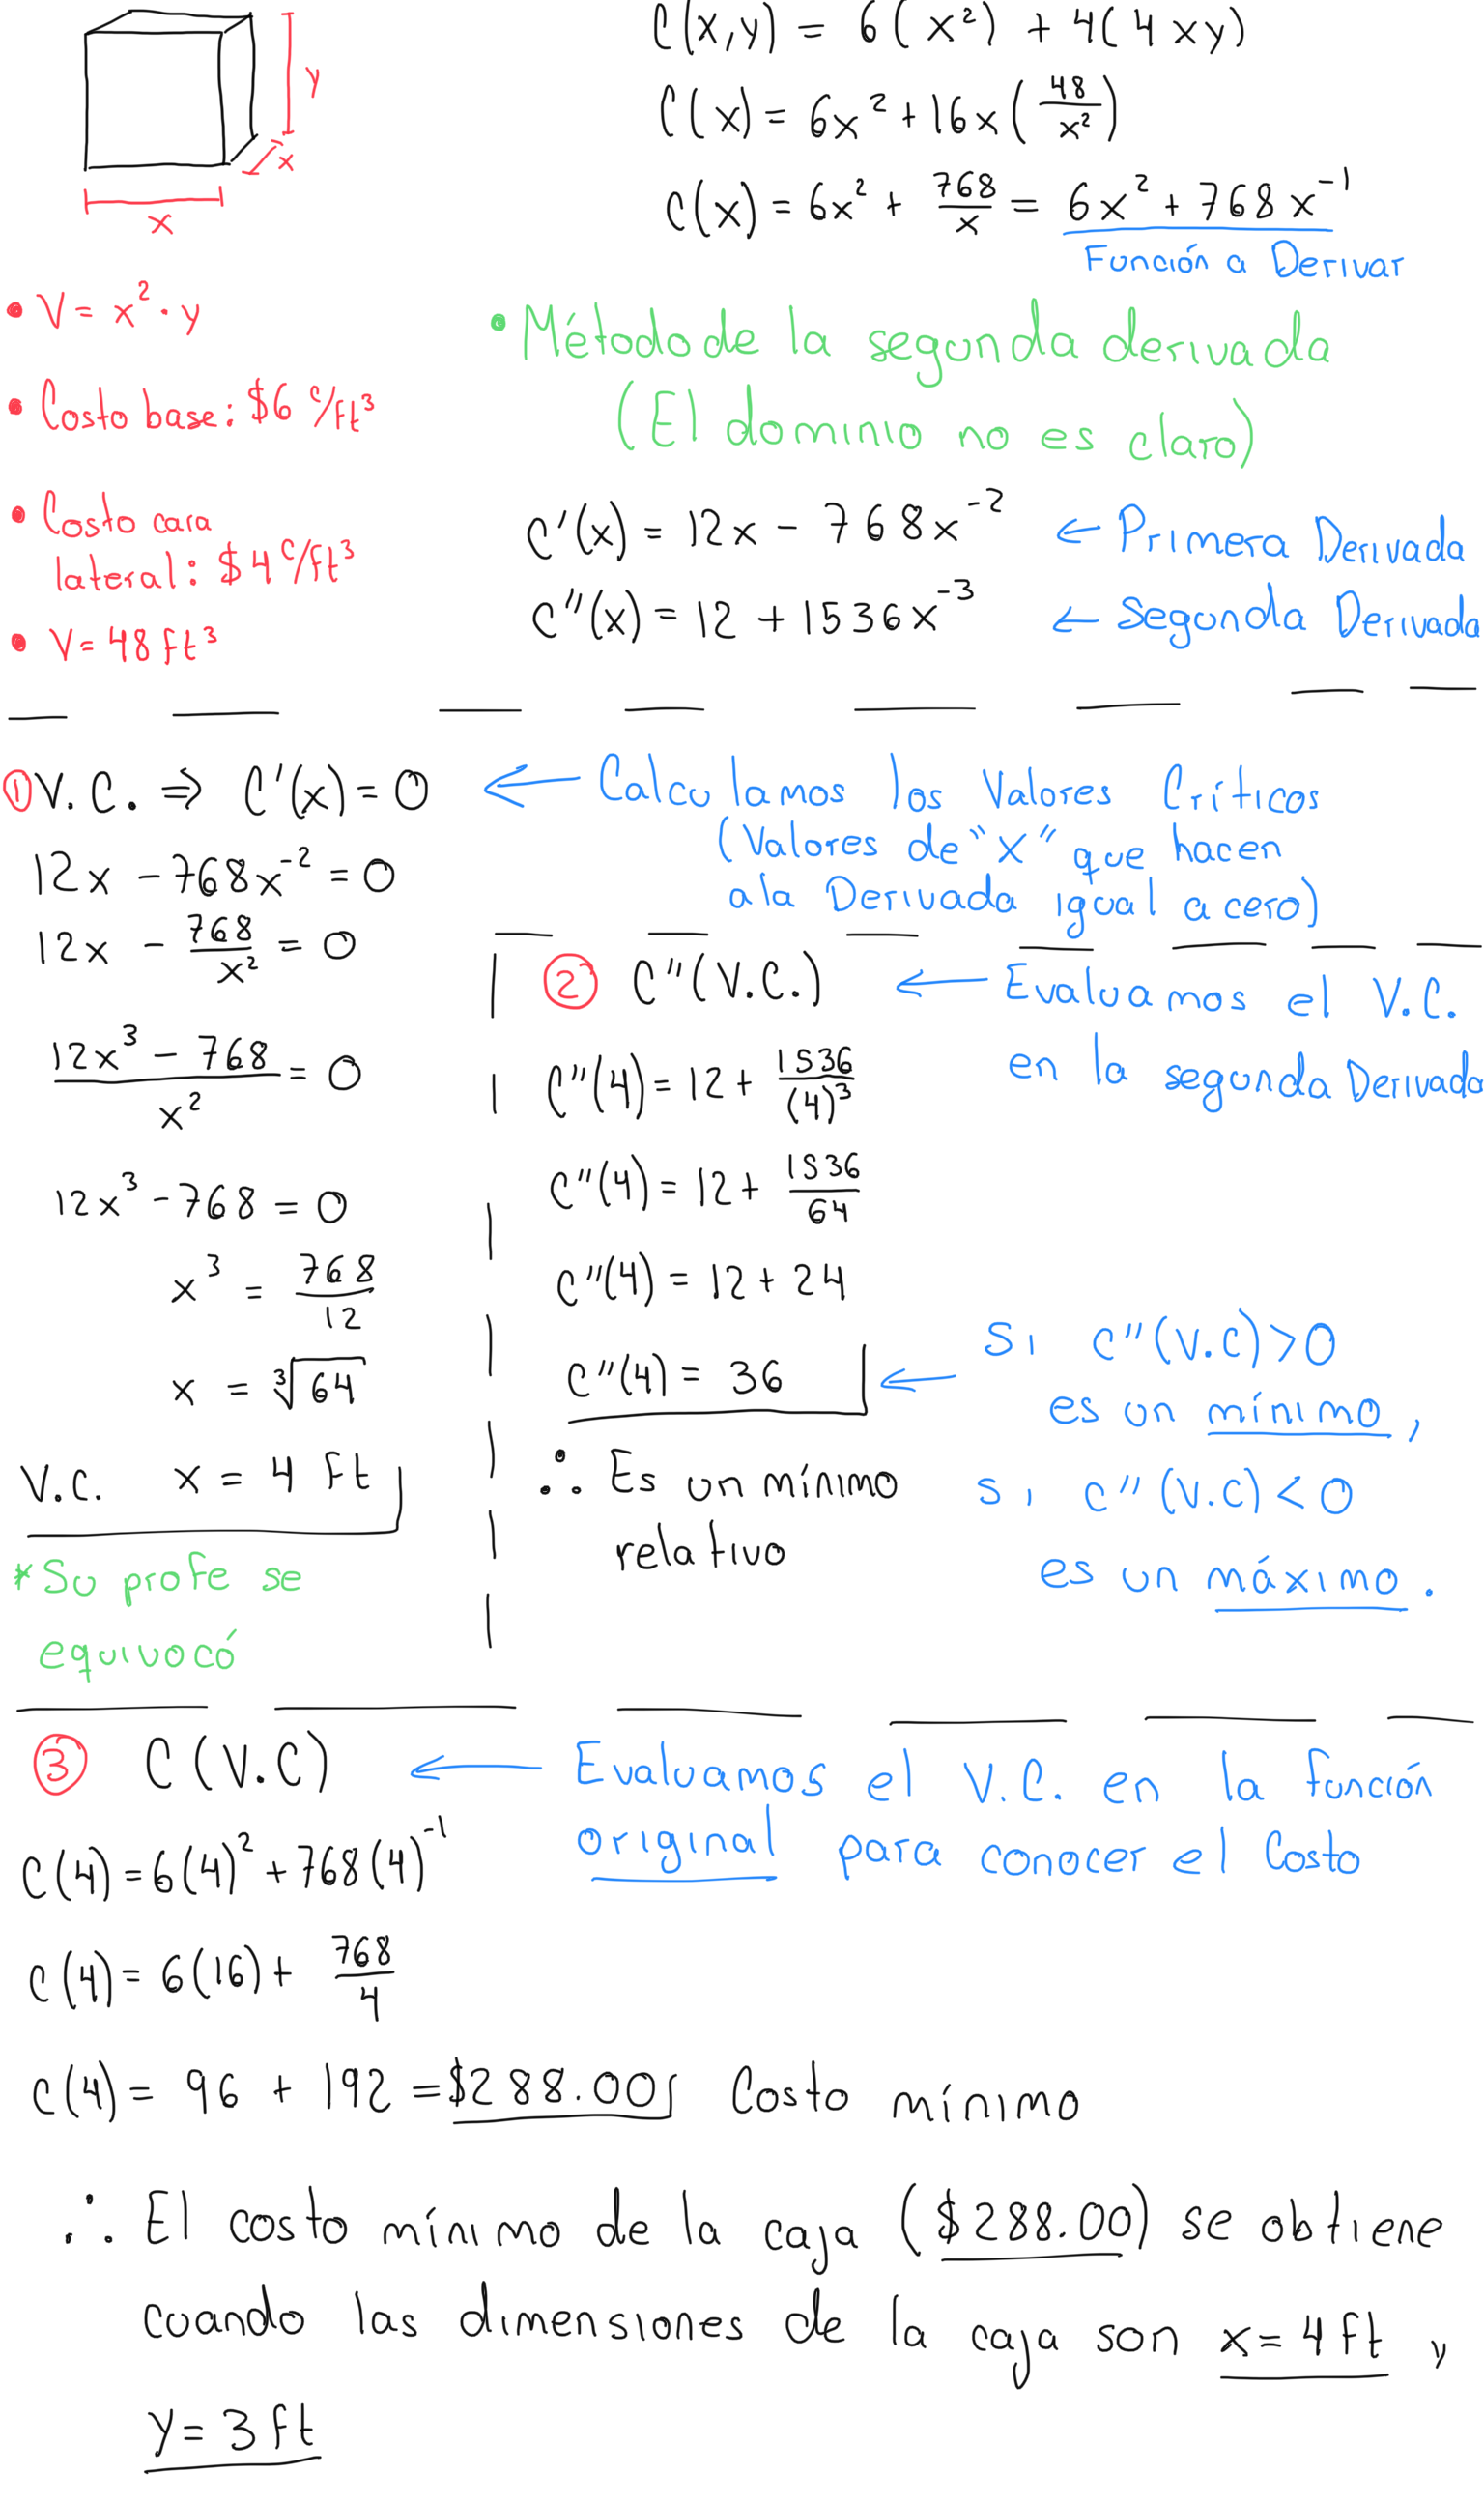 y
x
x
• V = x² · y
• Costo base: $6 c/ft³
• Costo cara
lateral: $4 c/ft³
• V = 48 ft³
C(x,y) = 6(x²) + 4(4xy)
C(x) = 6x² + 16x(48/x²)
C(x) = 6x² + 768/x = 6x² + 768x⁻¹
Función a Derivar
• Método de la segunda derivada
(El dominio no es claro)
C'(x) = 12x - 768x⁻² ← Primera Derivada
C''(x) = 12 + 1536x⁻³ ← Segunda Derivada
① V.C. ⇒ C'(x) = 0 ← Calculamos los Valores Críticos
(Valores de "x" que hacen
a la Derivada igual a cero)
12x - 768x⁻² = 0
12x - 768/x² = 0
(12x³ - 768)/x² = 0
12x³ - 768 = 0
x³ = 768/12
x = ∛64
V.C. x = 4 ft
*Su profe se
equivocó
② C''(V.C.) ← Evaluamos el V.C.
en la segunda Derivada
C''(4) = 12 + 1536/(4)³
C''(4) = 12 + 1536/64
C''(4) = 12 + 24
C''(4) = 36 ←
∴ Es un mínimo
relativo
Si C''(V.C) > 0
es un mínimo,
Si C''(V.C) < 0
es un máximo.
③ C(V.C) ← Evaluamos el V.C. en la función
original para conocer el Costo
C(4) = 6(4)² + 768(4)⁻¹
C(4) = 6(16) + 768/4
C(4) = 96 + 192 = $288.00 Costo mínimo
∴ El costo mínimo de la caja ($288.00) se obtiene
cuando las dimensiones de la caja son x = 4 ft,
y = 3 ft